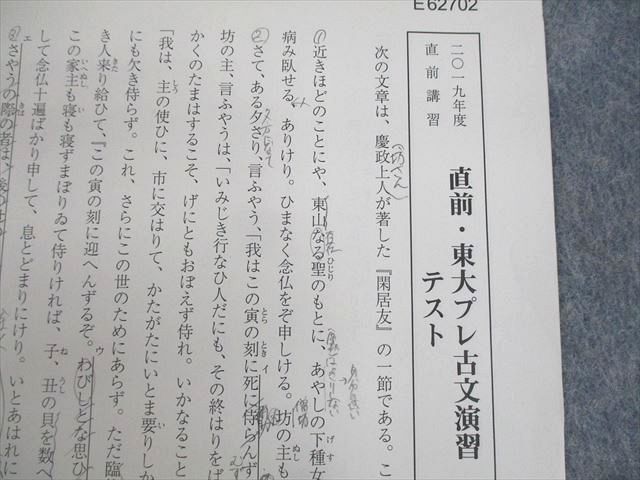 E62702
二〇一九年度
直前講習
直前・東大プレ古文演習
テスト
次の文章は、慶政上人が著した『閑居友』の一節である。こ
(お坊さん)
①近きほどのことにや、東山なる聖のもとに、あやしの下種女
ひじり
げす
病み臥せる、ありけり。ひまなく念仏をぞ申しける。坊の主も
ぬし
②さて、ある夕さり、言ふやう、「我はこの寅の刻に死に侍らんず
とら
とき
イ
坊の主、言ふやうは、「いみじき行なひ人だにも、その終はりをば
かくのたまはするこそ、げにともおぼえず侍れ。いかなること
「我は、主の使ひに、市に交はりて、かたがたにいとま要りしか
しゅう
い
にも欠き侍らず。これ、さらにこの世のためにあらず。ただ臨
き人来り給ひて、『この寅の刻に迎へんずるぞ。わびしとな思ひ
きた
ウ
この家主も寝も寝ずまぼりゐて侍りければ、子、丑の貝を数へ
いへぬし
い
ね
うし
して念仏十遍ばかり申して、息とどまりにけり。いとあはれに
エ
さやうの際の者は、